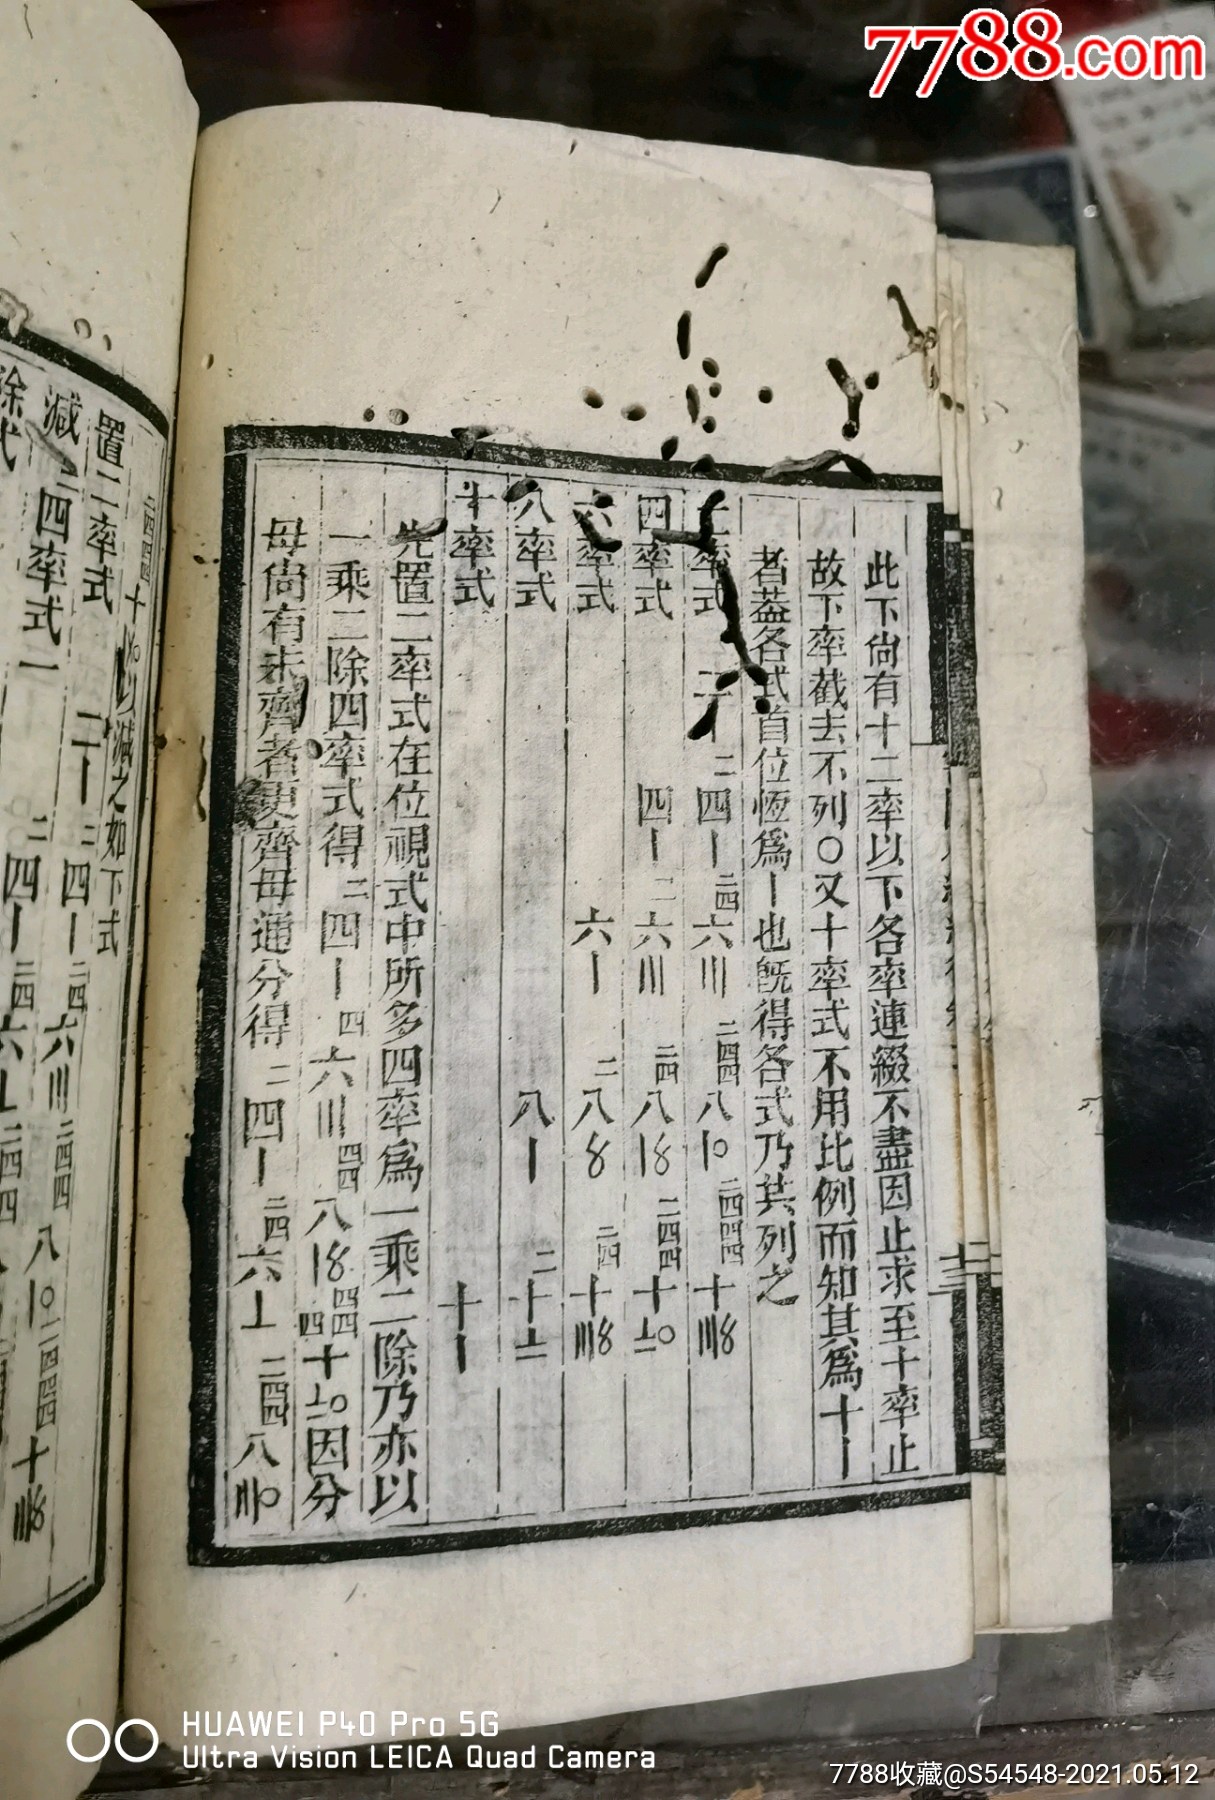 7788.com
此下尙有十二率以下各率連綴不盡因止求至十率止
故下率截去不列〇又十率式不用比例而知其爲十〡
者葢各式首位恆爲〡也旣得各式乃其列之
率式 二四〡 二四六〣 二四四八〡〇 二四四四十〣〥
四率式 四〡 二六〣 二四八〡〥 二四四十〦〇
六率式 六〡 二八〥 二四十〣〥
八率式 八〡 二十〦
十率式 十〡
先置二率式在位視式中所多四率爲一乘二除乃亦以
一乘二除四率式得二四〡 四六〣 四四八〡〥 四四四十〦〇因分
母尙有未齊者更齊母通分得二四〡 二四六〦 二四四八〣〇
二四四四十 以減之如下式
置二率式 二〡 二四〡 二四六〣 二四四八〡〇 二四四四十〣〥
減 四率式
除式
HUAWEI P40 Pro 5G
Ultra Vision LEICA Quad Camera
7788收藏@S54548-2021.05.12